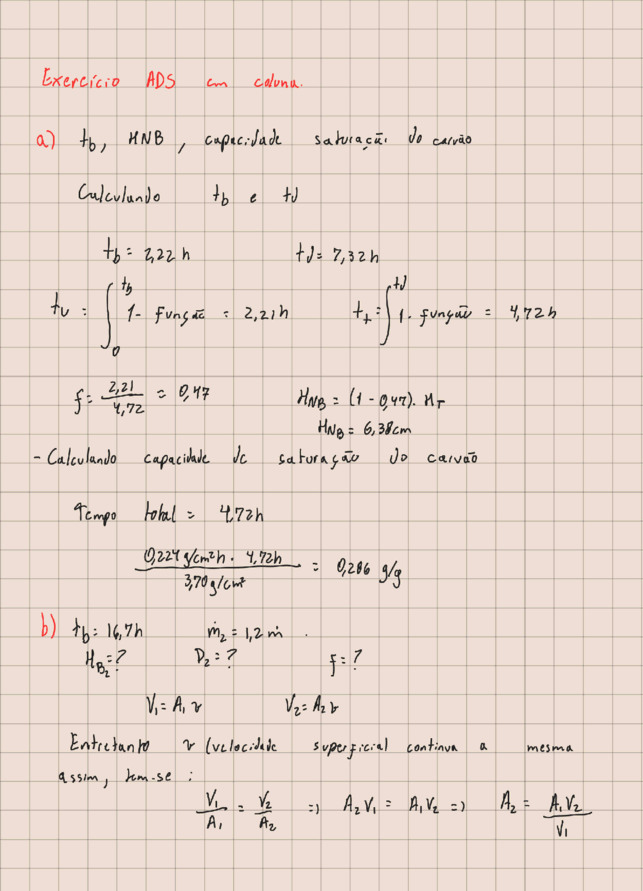 Exercício ADS em coluna.
a) tb, HNB, capacidade saturação do carvão
Calculando tb e td
tb = 2,22 h td = 7,32 h
tu = ∫₀^tb 1 - função = 2,21 h tt = ∫^td 1 - função = 4,72 h
f = 2,21/4,72 = 0,47 HNB = (1 - 0,47). HT
HNB = 6,38cm
- Calculando capacidade de saturação do carvão
Tempo total = 4,72h
0,224 g/cm²h . 4,72h / 3,70 g/cm² = 0,286 g/g
b) tb = 16,7h ṁ2 = 1,2 ṁ .
HB2 = ? D2 = ? f = ?
V1 = A1 v V2 = A2 v
Entretanto v (velocidade superficial continua a mesma
assim, tem-se :
V1/A1 = V2/A2 => A2 V1 = A1 V2 => A2 = A1 V2/V1